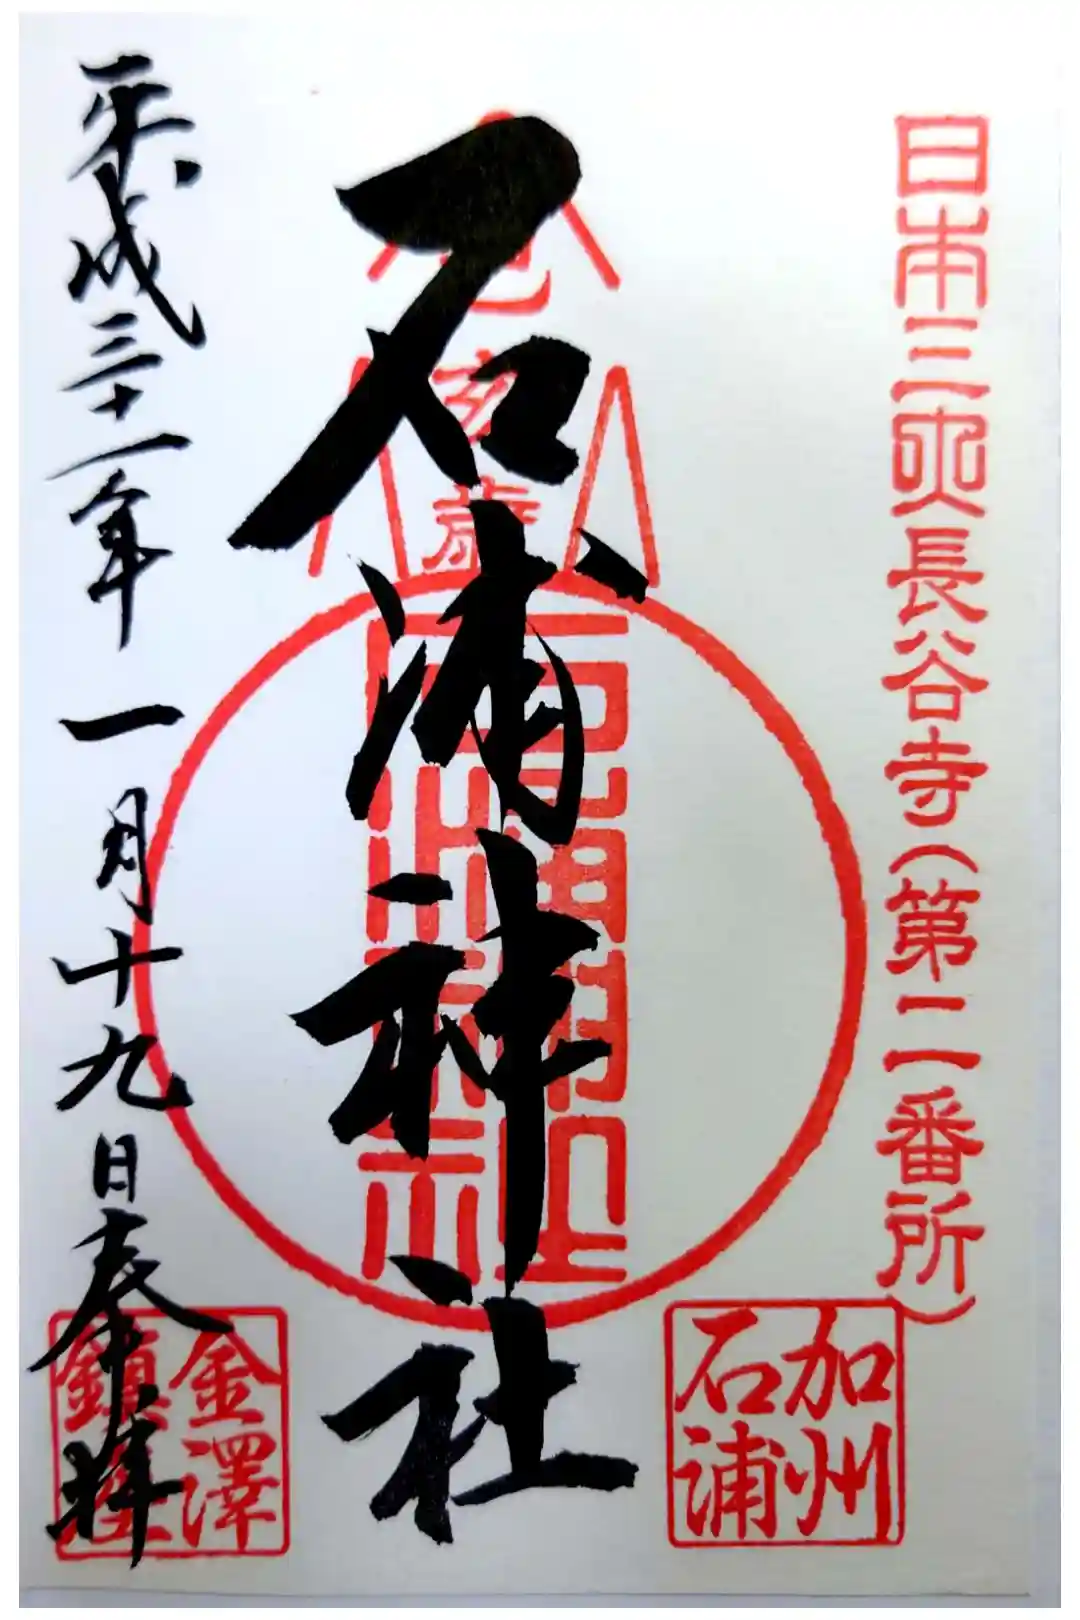 日本三所長谷寺(第二番所)
加州
石浦
石浦神社
亥歳
石浦神社
平成三十一年一月十九日奉拝
金澤
鎮座